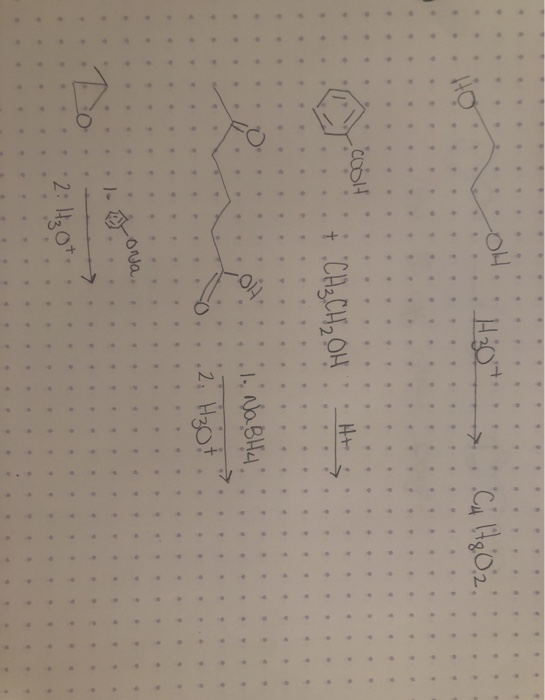 HO OH H3O+ C4H8O2
COOH + CH3CH2OH H+
O OH O 1. NaBH4
2. H3O+
O 1. ONa
2. H3O+